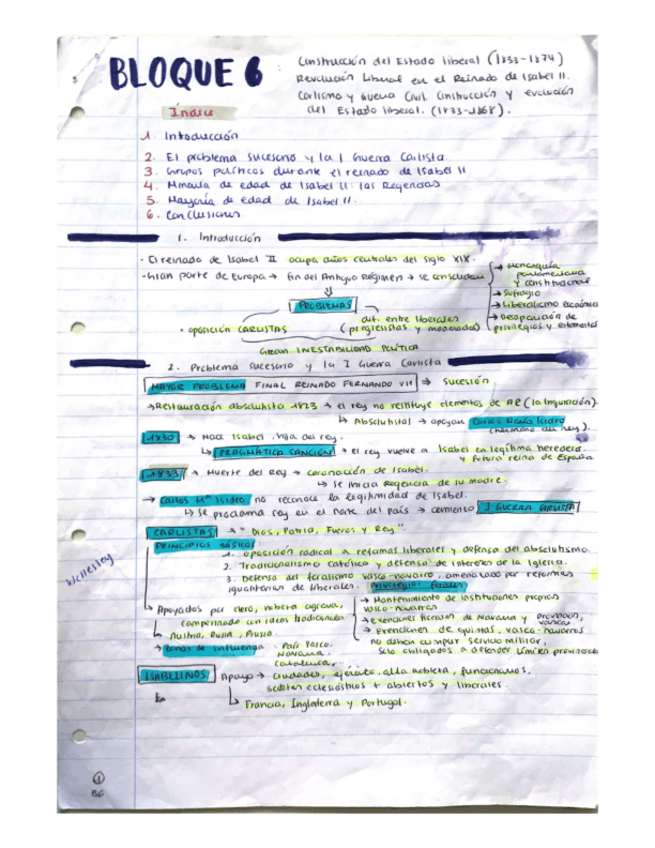 BLOQUE 6 : Construcción del Estado liberal (1833-1874)
Revolución Liberal en el Reinado de Isabel II.
Carlismo y Guerra Civil. Construcción y evolución
del Estado liberal. (1833-1868).
Índice
1. Introducción
2. El problema sucesorio y la I Guerra Carlista
3. Grupos políticos durante el reinado de Isabel II
4. Minoría de edad de Isabel II: las Regencias
5. Mayoría de edad de Isabel II.
6. Conclusiones
1. Introducción
· El reinado de Isabel II ocupa años centrales del siglo XIX.
· Gran parte de Europa → fin del Antiguo Régimen → se consolidan
→ Monarquía parlamentaria y constitucional
→ Sufragio
→ Liberalismo económico
→ Desaparición de privilegios y estamentos
PROBLEMAS
· oposición CARLISTAS
dif. entre liberales
(progresistas y moderados)
GRAN INESTABILIDAD POLÍTICA
2. Problema sucesorio y la I Guerra Carlista
MAYOR PROBLEMA FINAL REINADO FERNANDO VII ⇒ Sucesión
→ Restauración absolutista 1823 → el rey no restituye elementos de AR (la Inquisición).
↳ Absolutistas → apoyan Carlos María Isidro
(hermano del rey).
1830 → Nace Isabel, hija del rey.
↳ PRAGMÁTICA SANCIÓN → el rey vuelve a Isabel en legítima heredera
y futura reina de España
1833 → Muerte del Rey → coronación de Isabel.
↳ se inicia Regencia de su madre.
→ Carlos Mª Isidro no reconoce la legitimidad de Isabel.
↳ Se proclama rey en el norte del país → comienzo I GUERRA CARLISTA
CARLISTAS → "Dios, Patria, Fueros y Rey"
PRINCIPIOS BÁSICOS:
1. oposición radical a reformas liberales y defensa del absolutismo
2. Tradicionalismo católico y defensa de intereses de la Iglesia.
3. Defensa del foralismo vasco-navarro, amenazado por reformas
igualitarias de liberales. Privilegios forales
→ Mantenimiento de instituciones propias
vasco-navarras
→ Exenciones fiscales de Navarra y provincias vascas
→ Exenciones de quintas, vasco-navarros
no debían cumplir servicio militar,
solo obligados a defender límites provincia
↳ Apoyados por clero, nobleza agraria,
campesinado con ideas tradicionales
↳ Austria, Rusia, Prusia.
→ zonas de influencia · País Vasco.
Navarra.
Cataluña.
Wellesley
ISABELINOS Apoyo → ciudades, ejército, alta nobleza, funcionarios,
sectores eclesiásticos + abiertos y liberales.
↳ Francia, Inglaterra y Portugal.
1
B6